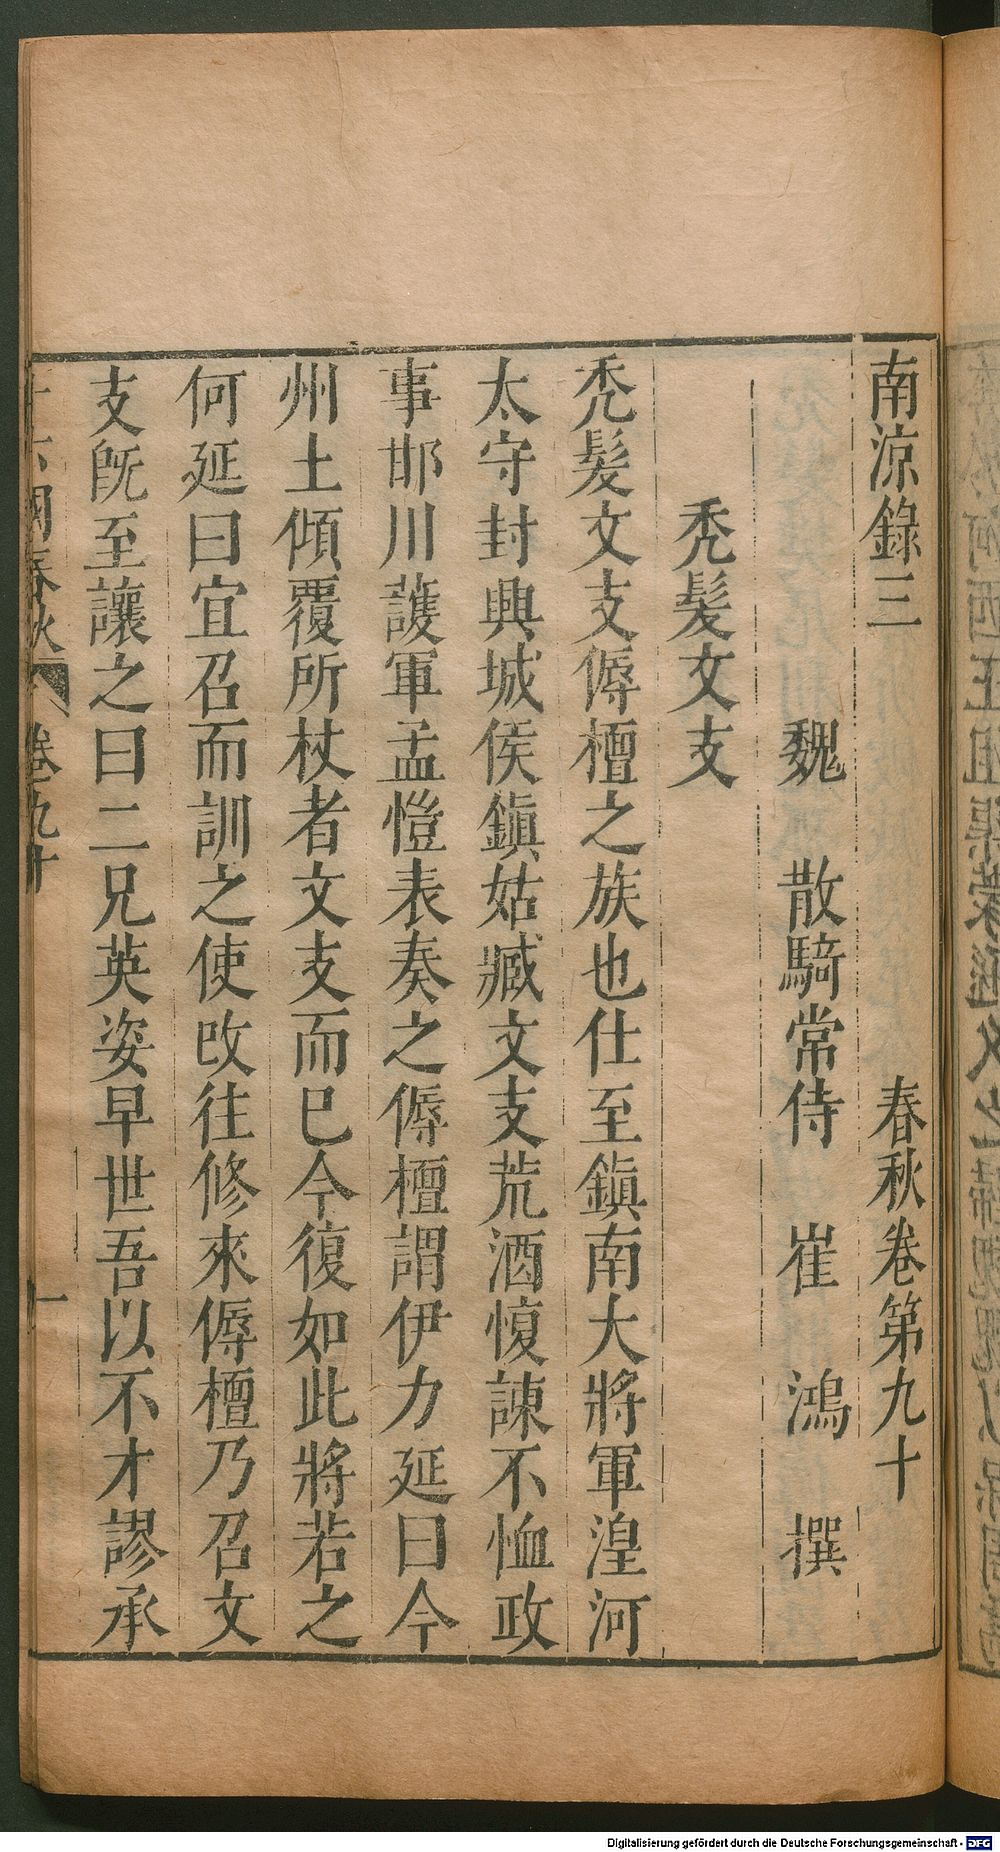 南涼錄三 春秋卷第九十
魏 散騎常侍 崔 鴻 撰
禿髮文支
禿髮文支傉檀之族也仕至鎭南大將軍湟河
太守封興城侯鎭姑臧文支荒酒愎諫不恤政
事邯川護軍孟愷表奏之傉檀謂伊力延曰今
州土傾覆所杖者文支而巳今復如此將若之
何延曰宜召而訓之使攺往修來傉檀乃召文
支旣至讓之曰二兄英姿早世吾以不才謬承
十六國春秋 卷九十 一
Digitalisierung gefördert durch die Deutsche Forschungsgemeinschaft - DFG